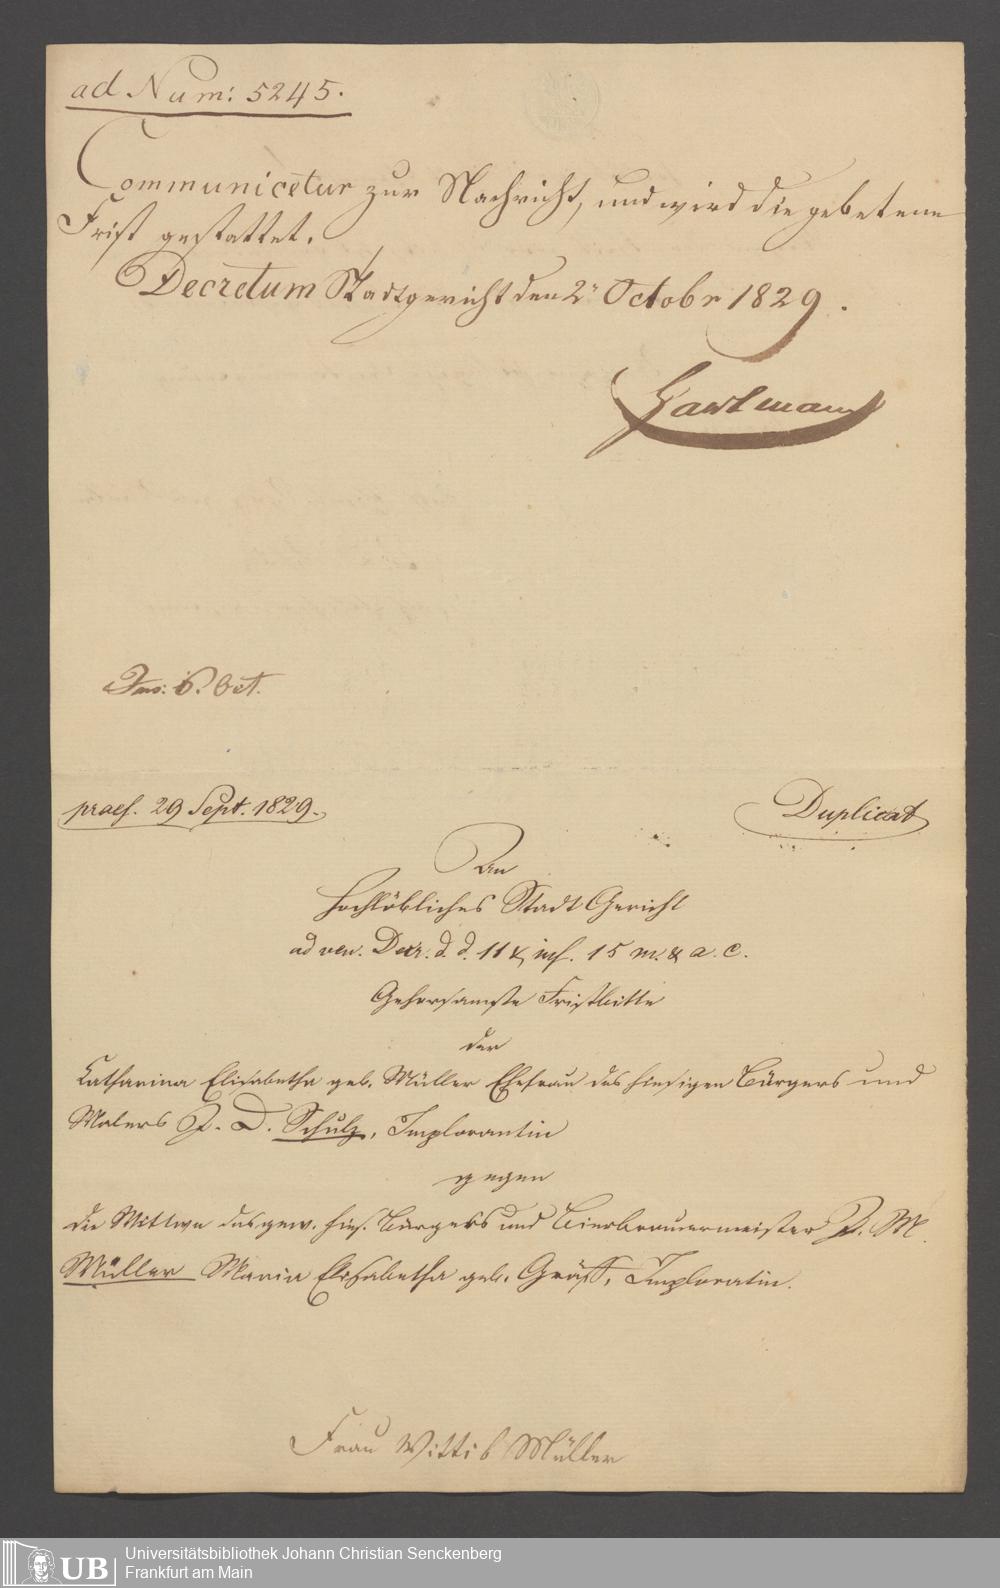 ad Num: 5245.
Communicetur zur Nachricht, und wird die gebetene
Frist gestattet.
Decretum Stadtgericht den 2n October 1829.
Hartmann
Ins: 6. Oct.
praes. 29 Sept. 1829.
Duplicat
An
Hochlöbliches Stadt Gericht
ad ven. Decr. d. d. 11 & ins. 15 m. & a. c.
Gehorsamste Fristbitte
der
Catharina Elisabetha geb. Müller Ehefrau des hiesigen Bürgers und
Malers J. D. Schulz, Implorantin
gegen
die Wittwe des gew. hies. Bürgers und Bierbrauermeister J. M.
Müller Maria Elisabetha geb. Gräff, Imploratin.
Frau Wittib Müller
UB
Universitätsbibliothek Johann Christian Senckenberg
Frankfurt am Main